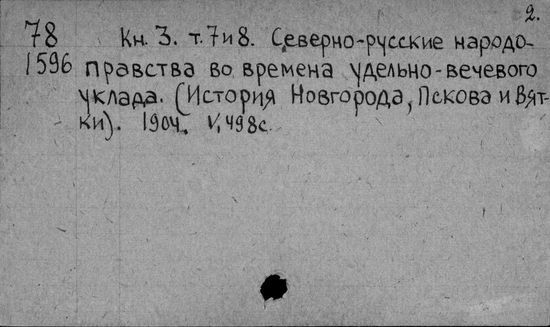 2.
78 Кн. 3. т. 7 и 8. Северно-русские народо-
1596 правства во времена удельно-вечевого
уклада. (История Новгорода, Пскова и Вят-
ки). 1904. V, 498 с.